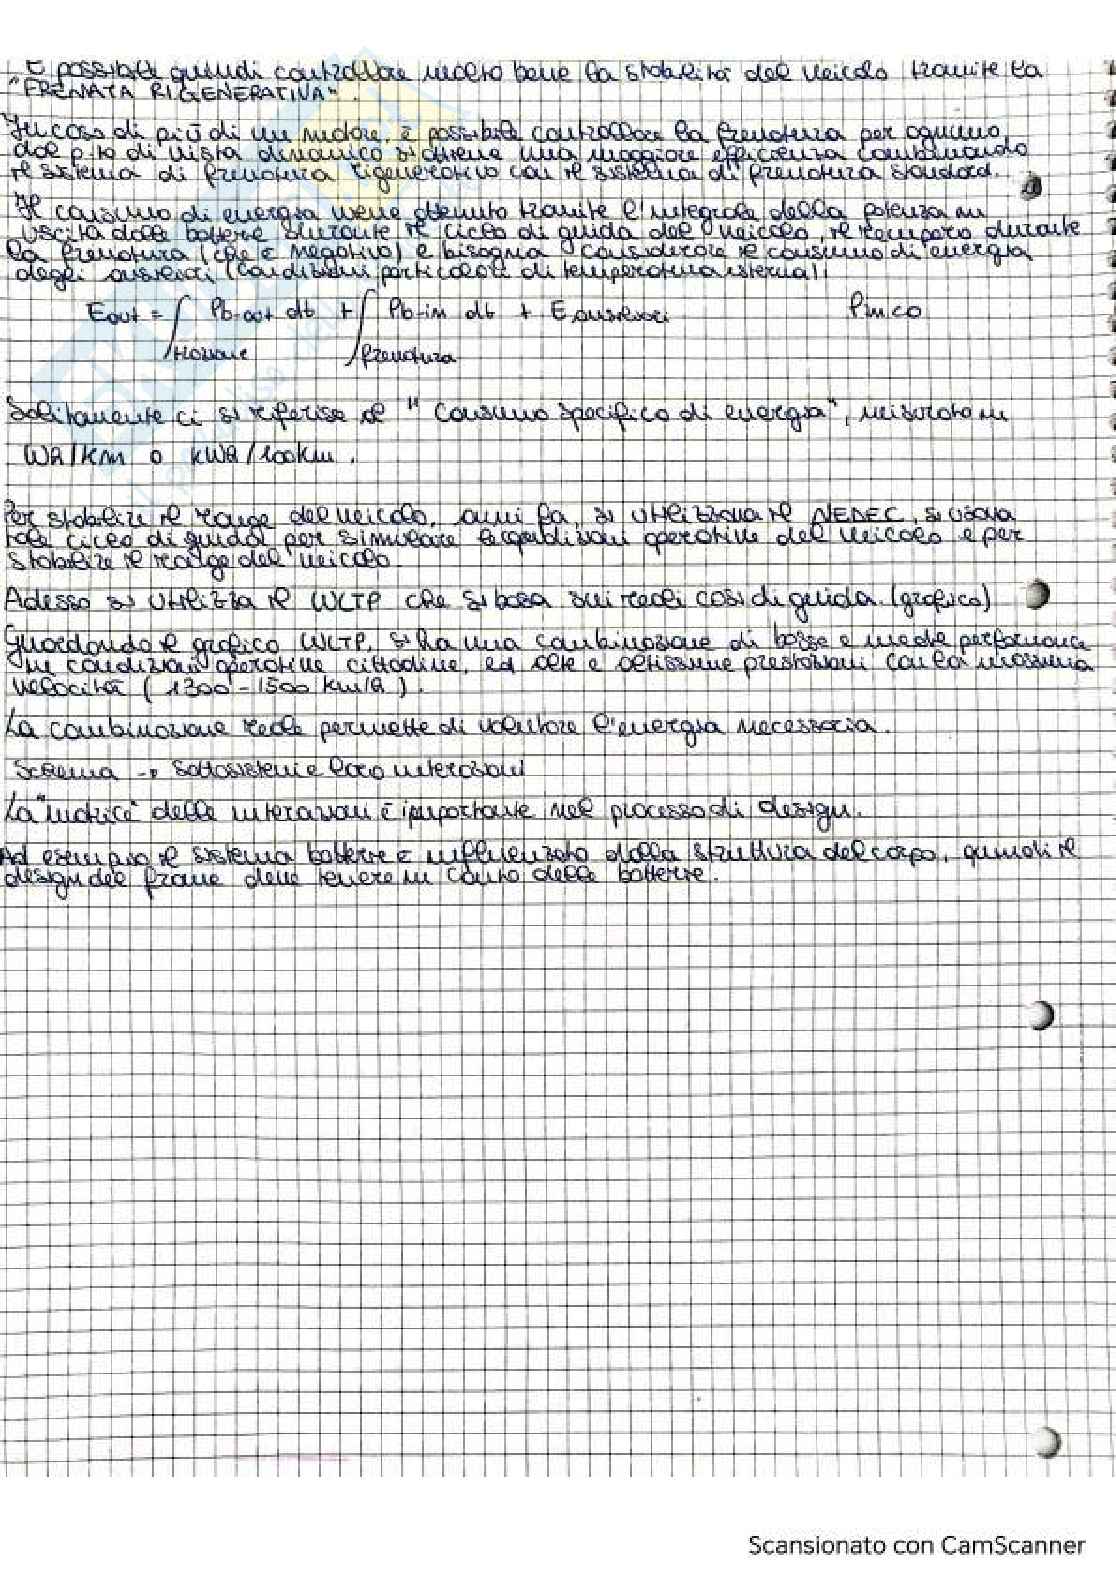 È possibile quindi controllare molto bene la stabilità del veicolo tramite la
"FRENATA RIGENERATIVA".
In caso di più di un motore, è possibile controllare la frenatura per ognuno,
dal p.to di vista dinamico si ottiene una maggiore efficienza combinando
il sistema di frenatura rigenerativo con il sistema di frenatura standard.
Il consumo di energia viene ottenuto tramite l'integrale della potenza in
uscita dalle batterie durante il ciclo di guida del veicolo, il recupero durante
la frenatura (che è negativo) e bisogna considerare il consumo di energia
degli ausiliari (condizioni particolari di temperatura esterna):
Eout = ∫ Pb-out dt + ∫ Pb-in dt + E ausiliari
trazione frenatura
Solitamente ci si riferisce al "consumo specifico di energia", misurato in
Wh/km o kWh/100km.
Per stabilire il range del veicolo, anni fa, si utilizzava il NEDEC, si usava
tale ciclo di guida per simulare le condizioni operative del veicolo e per
stabilire il range del veicolo.
Adesso si utilizza il WLTP che si basa sui reali casi di guida. (grafico)
Guardando il grafico WLTP, si ha una combinazione di basse e medie performance
in condizioni operative cittadine, ed alte e altissime prestazioni con la massima
velocità (1300-1500 km/h).
La combinazione reale permette di valutare l'energia necessaria.
Schema → Sottosistemi e loro interazioni
La "matrice" delle interazioni è importante nel processo di design.
Ad esempio il sistema batterie è influenzato dalla struttura del corpo, quindi il
design del frame deve tenere in conto delle batterie.
Scansionato con CamScanner